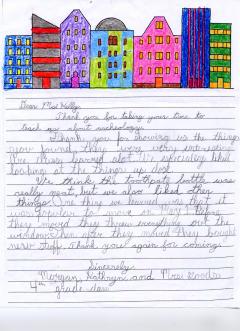 Dear Mrs. Kelly,
Thank you for taking your time to
teach us about archeology.
Thank you for showing us the things
you found, they were very interesting.
Mrs. learned alot. We especially liked
looking at the things up close.
We think the bottle was
really neat, but we also liked other
things. One thing we learned was that it
was popular to move on May 1. Before
they moved they threw everything out the
window. Then after they moved they bought
new stuff. Thank you again for coming.
Sincerely,
Morgan, Kathryn and Mrs. Goods
4th grade class